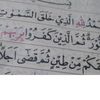 لِلَّهِ الَّذِي خَلَقَ السَّمٰوٰتِ
ثُمَّ الَّذِينَ كَفَرُوا بِرَبِّهِمْ
مِنْ طِينٍ ثُمَّ قَضٰى أَجَلًا